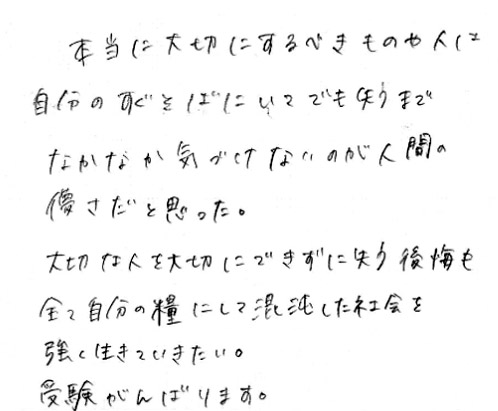 本当に大切にするべきものや人は
自分のすぐそばにいてでも失うまで
なかなか気づけないのが人間の
儚さだと思った。
大切な人を大切にできずに失う後悔も
全て自分の糧にして混沌した社会を
強く生きていきたい。
受験がんばります。